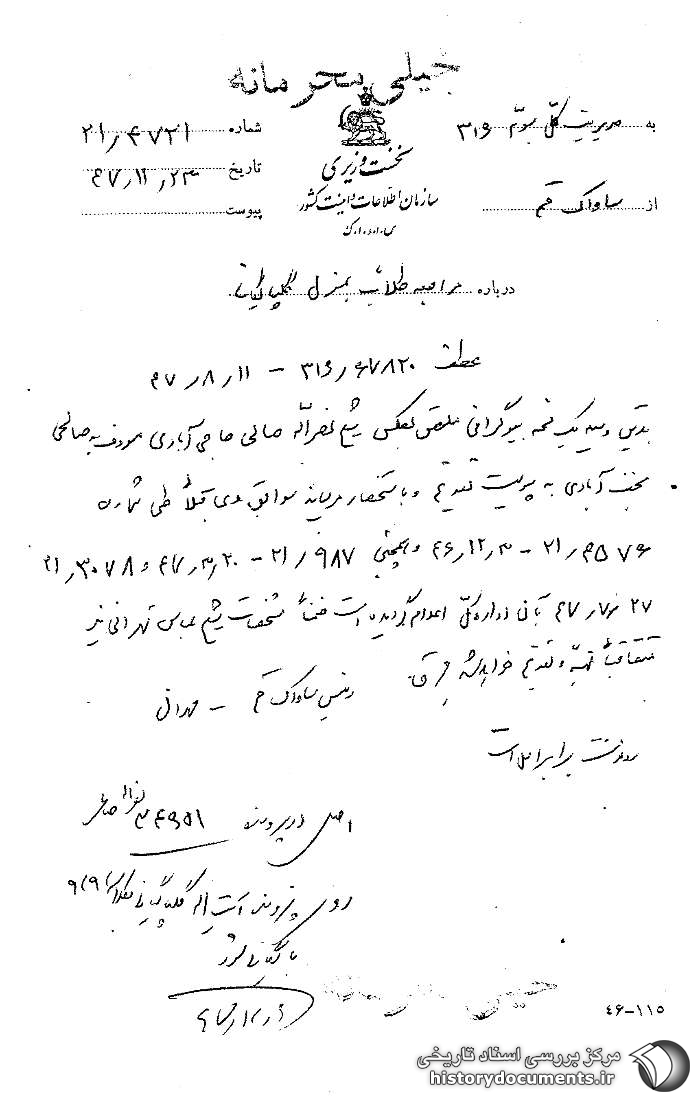 خیلی محرمانه
به مدیریت کل سوم ۳۱۶
شماره ۲۱٫۴۷۲۱
نخست وزیری
تاریخ ۴۷٫۱۱٫۲۳
از ساواک قم
سازمان اطلاعات و امنیت کشور
پیوست
س.ا.و.ا.ک
درباره مراجعه طلاب بمنزل گلپایگانی
عطف ۳۱۶٫۴۷۸۲۰ – ۴۷٫۸٫۱۱
بدین وسیله یک نسخه بیوگرافی ملصق بعکس شیخ نصراله صالحی حاجی آبادی معروف به صالحی
نجف آبادی به پیوست تقدیم و باستحضار میرساند سوابق وی قبلاً طی شماره
۲۱٫۴۵۷۶ – ۴۶٫۱۲٫۳ و همچنین ۲۱٫۹۸۷ – ۴۷٫۳٫۲۰ و ۲۱٫۳۰۷۸
۴۷٫۷٫۲۷ بآن اداره کل اعلام گردیده است ضمناً مشخصات شیخ عباس تهرانی نیز
متعاقباً تهیه و تقدیم خواهد شد
رئیس ساواک قم – مهران
رونوشت برابر اصل است
اصل در پرونده صالحی
روی پرونده آیت اله گلپایگانی
بایگانی شود
خیلی محرمانه
۴۶-۱۱۵
مرکز بررسی اسناد تاریخی
historydocuments.ir